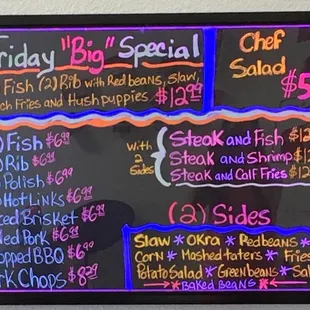 riday "Big" Special
Fish (2) Rib with Red beans, Slaw,
ch Fries and Hushpuppies $12.99
Chef
Salad
$5
) Fish $6.99
) Rib $6.99
) Polish $6.99
HotLinks $6.99
ced Brisket $6.99
led Pork $6.99
opped BBQ $6.99
rk Chops $8.29
With
2
Sides
Steak and Fish $12
Steak and Shrimp $12
Steak and Calf Fries $12
(2) Sides
Slaw * Okra * Redbeans *
Corn * Mashed taters * Fries
Potato Salad * Greenbeans * Sal
* Baked Beans *